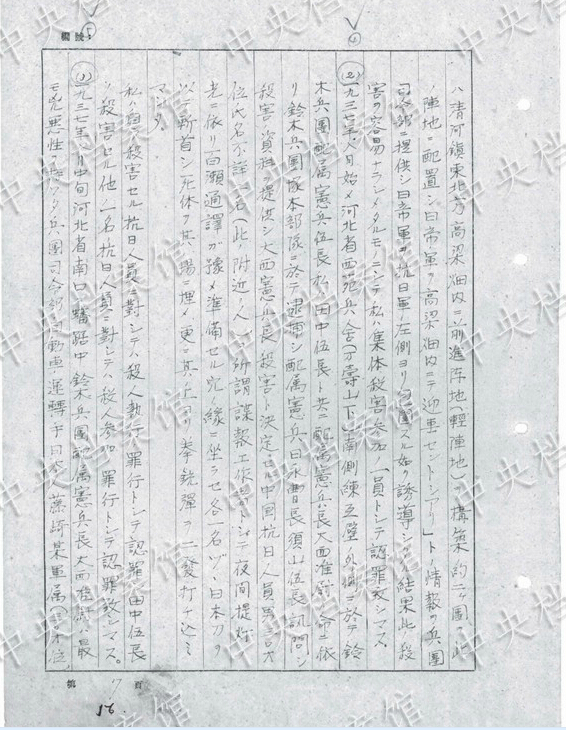 ハ清河鎮東北方高梁畑内ニ前進阵地(輕陣地)ヲ構築約二ヶ團ヲ此
陣地ニ配置シ日帝軍ヲ高梁畑内ニテ迎
ト情報ヲ兵團
司令部ニ提供シ日帝軍ヲ抗日軍ノ左側ヨリ
スル如ク誘導シタ結果此ノ殺
害ヲ容易ナラシメタルモノニシテ私ハ集体殺害参加ノ一員トシテ認罪致シマス
(2)一九三七年八月始メ河北省西苑兵舎(万壽山下)南側練瓦壁ノ外側ニ於テ鈴
木兵團配属憲兵伍長私ハ田中伍長ト共ニ配属憲兵長大西准尉ノ命ニ依
リ鈴木兵團
本部隊ニ於テ逮捕シ配属憲兵曹長須山伍長訊問シ
殺害ノ資料ヲ提供シ大西憲兵長ノ殺害ト決定セル中国抗日人員男三十才
位氏名不詳二名(此ノ附近ノ人)ヲ所謂諜報工作
トシテ夜間提灯
光ニ依リ白
通譯ガ豫メ準備セル穴ノ縁ニ坐ラセ各一名ヅツ日本刀ヲ
以テ斬首シ死体ヲ其ノ場ニ埋メ更ニ其ノ上ヨリ拳銃彈ヲ二發打チ込ミ
マシタ
私ハ自ラ殺害セル抗日人員ニ對シテハ殺人執行ノ罪行トシテ認罪シ田中伍長
ノ殺害セル他ノ一名抗日人員ニ對シテハ殺人参加ノ罪行トシテ認罪致シマス。
(3)一九三七年八月中旬河北省南口ノ
路中鈴木兵團配属憲兵長大西准尉ハ最
モ兇悪性ヲ
兵團司令部自動車ノ運轉手日本人藤崎某軍属(
才位
第 7 頁
16.
中央档案馆